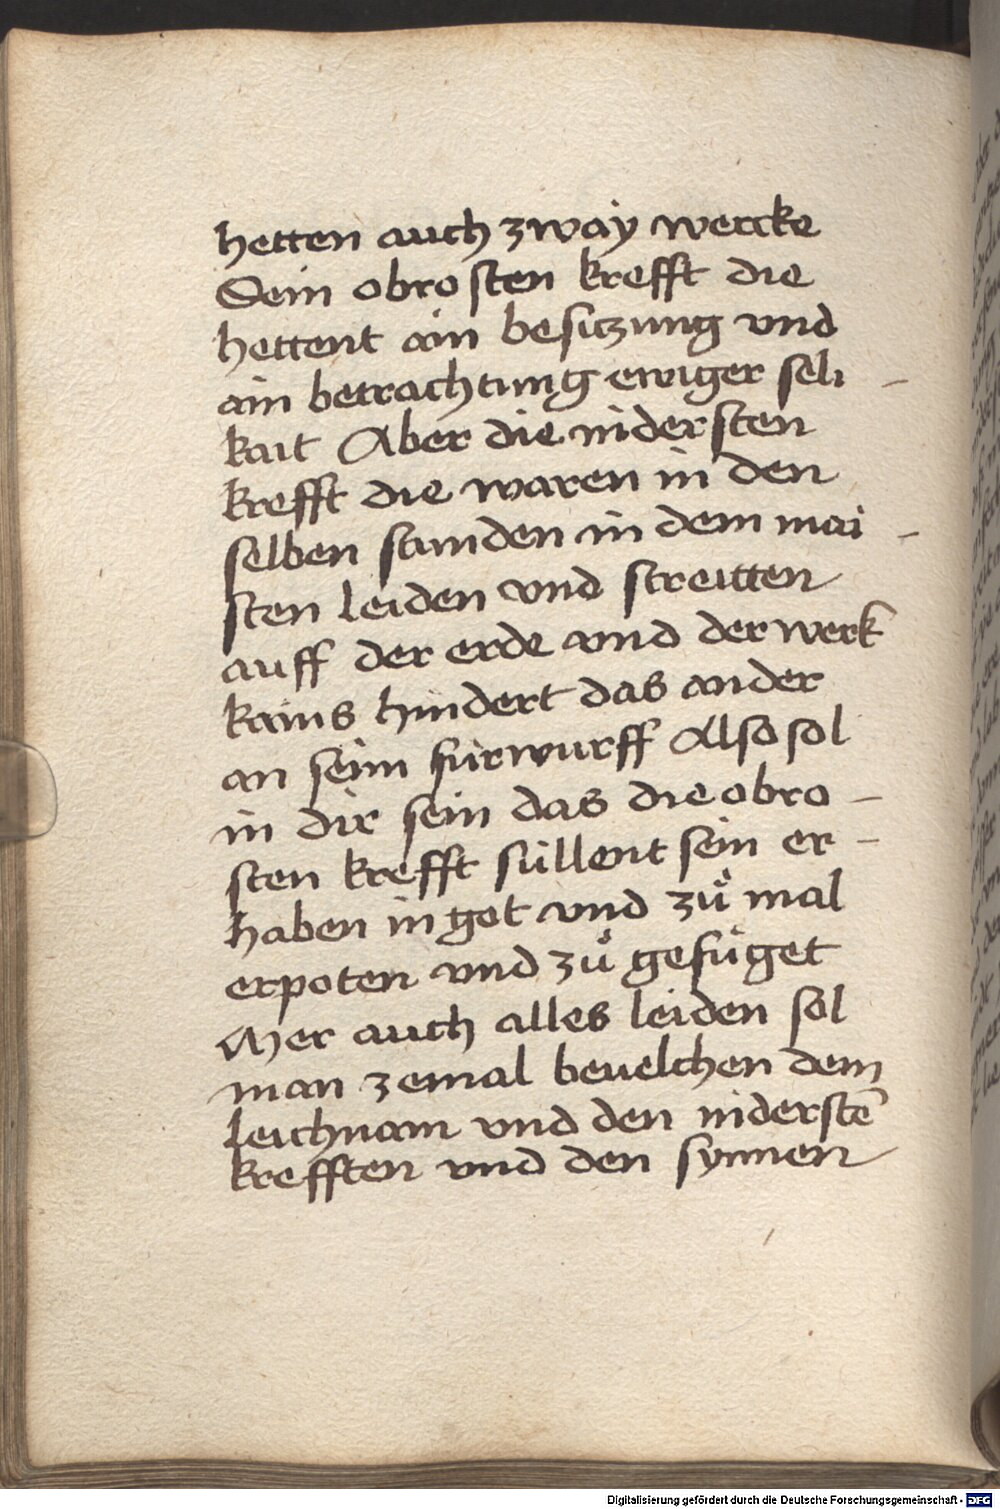 hetten auch zway wercke
Sein obrosten krefft die
hettent ain besiczung vnd
ain betrachtung ewiger seli –
kait Aber die nidersten
krefft die waren in den
selben stunden in dem mai –
sten leiden vnd streitten
auff der erde vnd der werk
kains hindert das ander
an seim fürwurff Also sol
in dir sein das die obro –
sten krefft süllent sein er –
haben in got vnd zuͦ mal
erpoten vnd zuͦ gefüget
Mer auch alles leiden sol
man zemal beuelchen dem
leichnam vnd den niderstē
krefften vnd den synnen
Digitalisierung gefördert durch die Deutsche Forschungsgemeinschaft - DFG